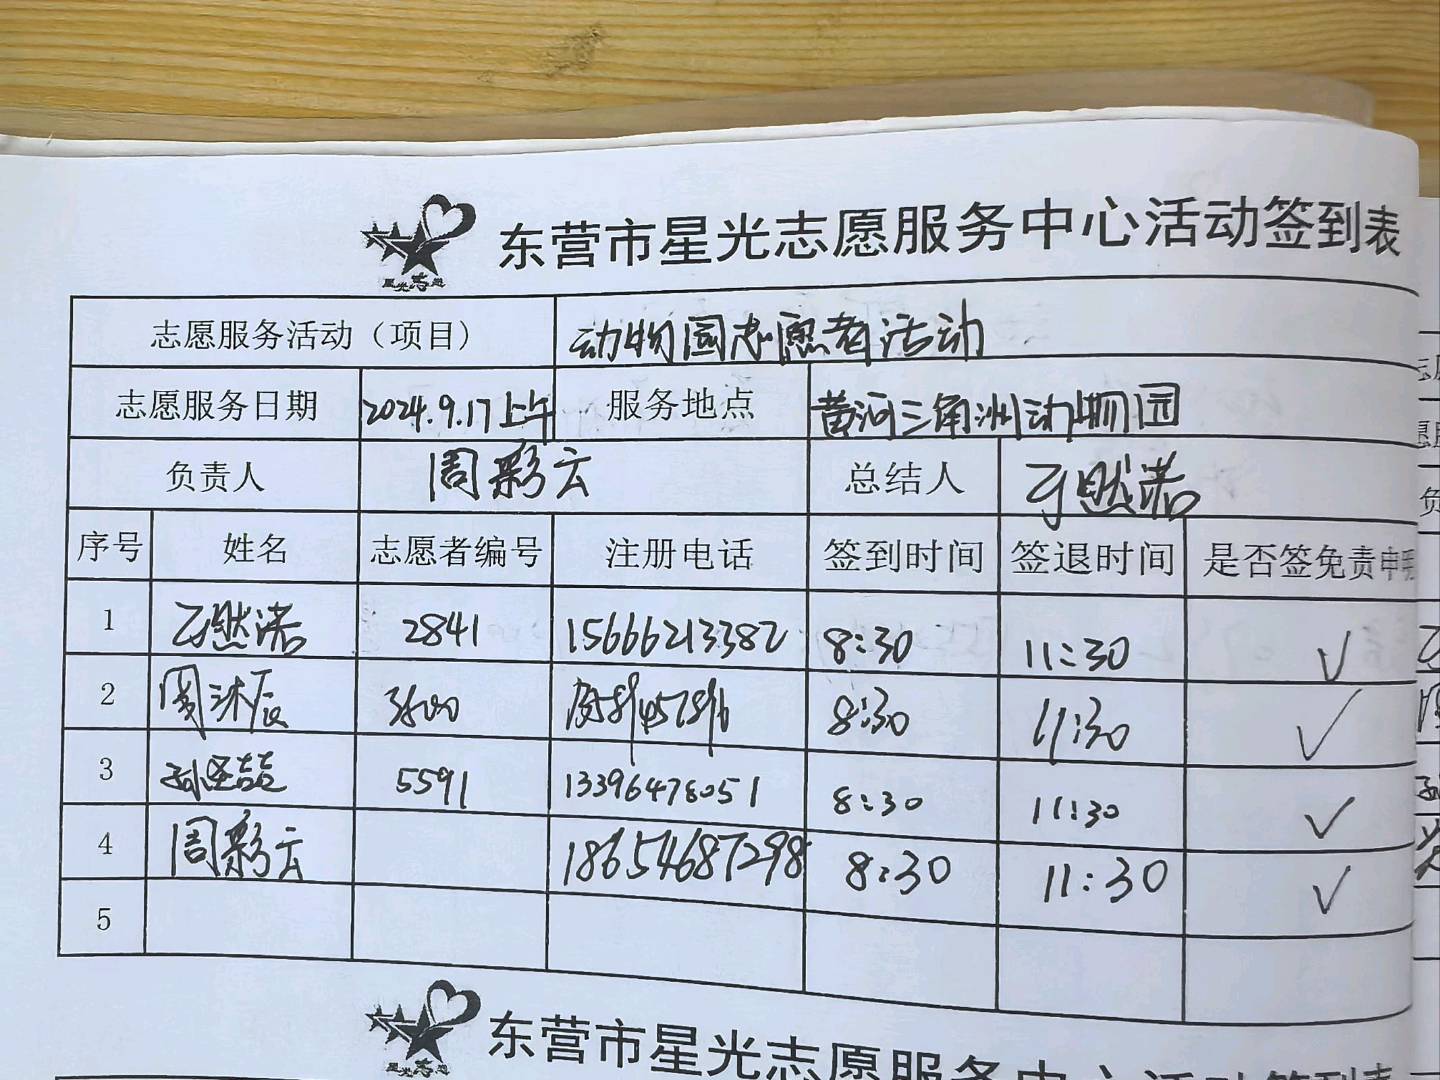 星光志愿
东营市星光志愿服务中心活动签到表
志愿服务活动（项目） 动物园志愿者活动
志愿服务日期 2024.9.17上午 服务地点 黄河三角洲动物园
负责人 周彩云 总结人 于然诺
序号 姓名 志愿者编号 注册电话 签到时间 签退时间 是否签免责申明
1 于然诺 2841 15666213382 8:30 11:30 ✓
2 周沐辰 8:30 11:30 ✓
3 孙圣喆 5591 13396478051 8:30 11:30 ✓
4 周彩云 18654687298 8:30 11:30 ✓
5
星光志愿
东营市星光志愿服务中心活动签到表